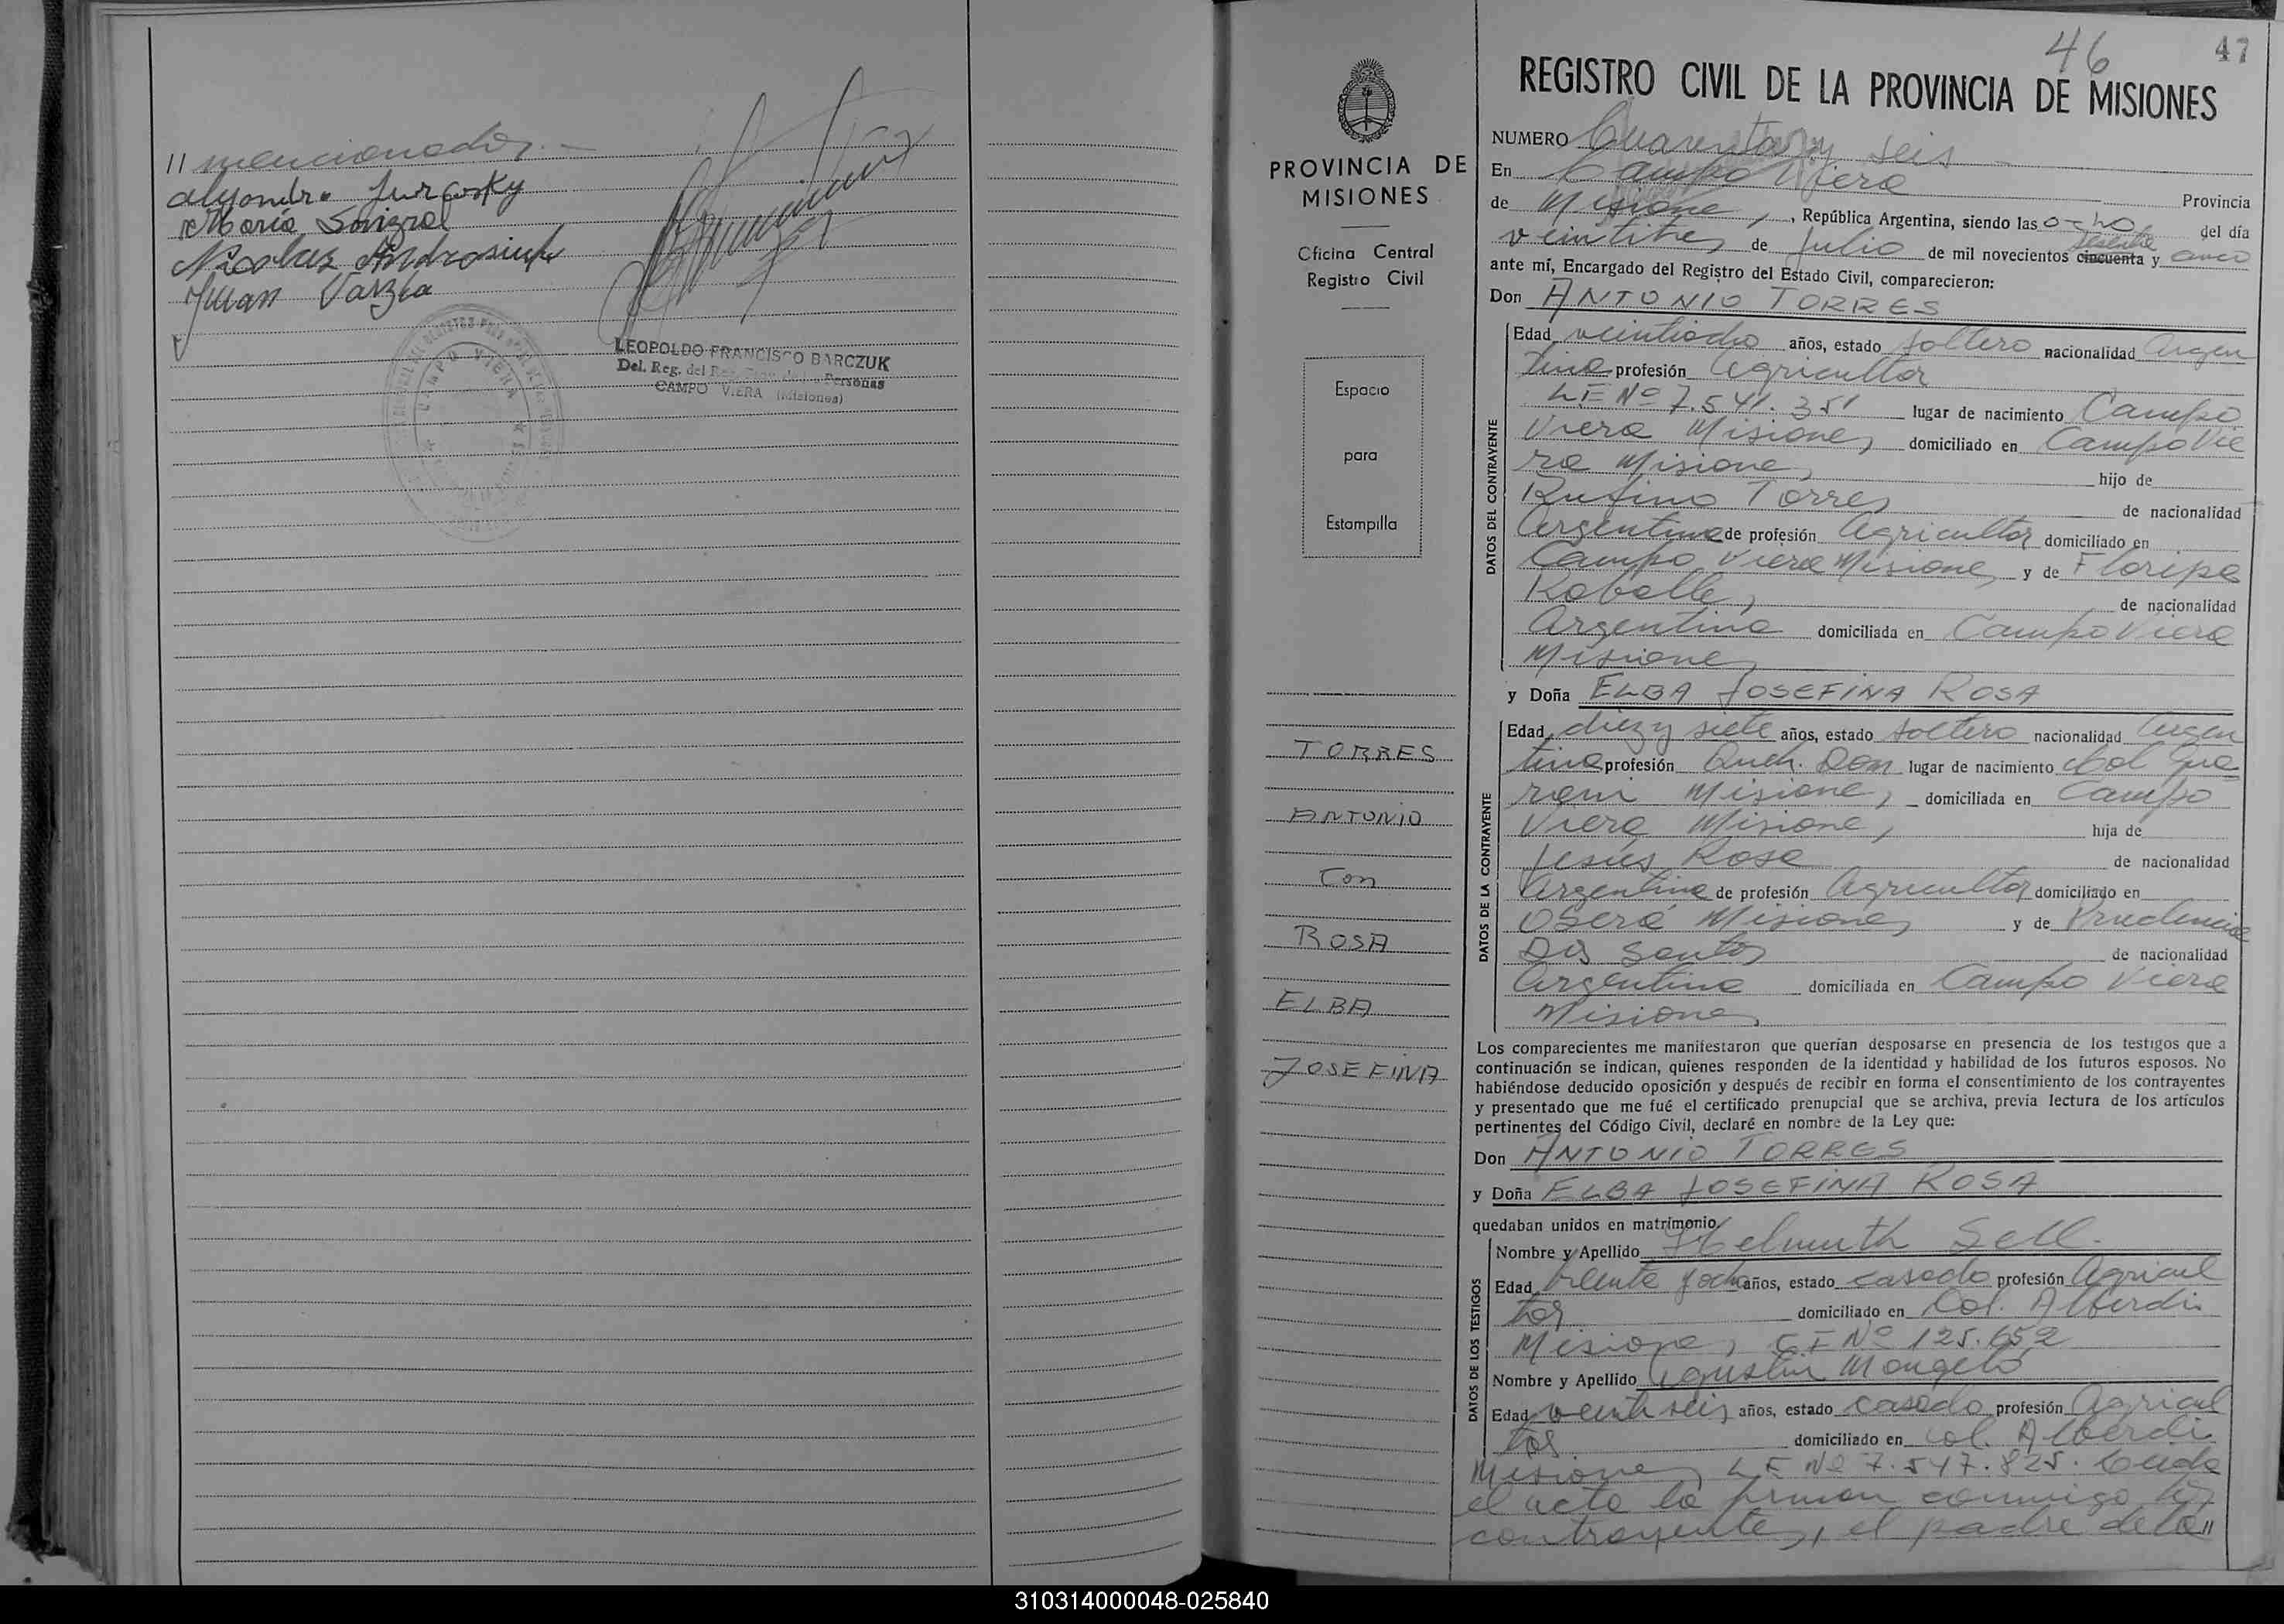 // mencionados.-
Alejandro Jurcosky
María
Nicolas Androsiuk
Juan
LEOPOLDO FRANCISCO BARCZUK
Del. Reg. del Personas
CAMPO VIERA (Misiones)
CAMPO VIERA
PROVINCIA DE
MISIONES
Oficina Central
Registro Civil
Espacio
para
Estampilla
TORRES
ANTONIO
Con
ROSA
ELBA
JOSEFINA
46
47
REGISTRO CIVIL DE LA PROVINCIA DE MISIONES
NUMERO Cuarenta y seis -
En Campo Viera
de Misiones, República Argentina, siendo las ocho del día Provincia
veintitres de Julio de mil novecientos cincuenta sesenta y cinco
ante mí, Encargado del Registro del Estado Civil, comparecieron:
Don ANTONIO TORRES
DATOS DEL CONTRAYENTE
Edad veintiocho años, estado soltero nacionalidad Argen
tina profesión Agricultor
LE Nº 7.541.351 lugar de nacimiento Campo
Viera Misiones domiciliado en Campo Vie
ra Misiones, hijo de
Rufino Torres de nacionalidad
Argentina de profesión Agricultor domiciliado en
Campo Viera Misiones y de Floripa
de nacionalidad
Argentina domiciliada en Campo Viera
Misiones
y Doña ELBA JOSEFINA ROSA
DATOS DE LA CONTRAYENTE
Edad diez y siete años, estado soltera nacionalidad Argen
tina profesión Queh. Dom lugar de nacimiento Col Gua
rani Misiones, domiciliada en Campo
Viera Misiones, hija de
Jesús Rosa de nacionalidad
Argentina de profesión Agricultor domiciliado en
Oberá Misiones y de Prudencia
Dos Santos de nacionalidad
Argentina domiciliada en Campo Viera
Misiones
Los comparecientes me manifestaron que querían desposarse en presencia de los testigos que a
continuación se indican, quienes responden de la identidad y habilidad de los futuros esposos. No
habiéndose deducido oposición y después de recibir en forma el consentimiento de los contrayentes
y presentado que me fué el certificado prenupcial que se archiva, previa lectura de los artículos
pertinentes del Código Civil, declaré en nombre de la Ley que:
Don ANTONIO TORRES
y Doña ELBA JOSEFINA ROSA
quedaban unidos en matrimonio
DATOS DE LOS TESTIGOS
Nombre y Apellido Helmuth Sell.
Edad treinta y ocho años, estado casado profesión Agricul
tor domiciliado en Col. Alberdi
Misiones, C I Nº 125.652
Nombre y Apellido Agustin Mongelo
Edad veintiseis años, estado casado profesión Agricul
tor domiciliado en Col. Alberdi
Misiones, L E Nº 7.547.825. Leida
el acta la firman conmigo los
contrayentes, el padre de la //
310314000048-025840